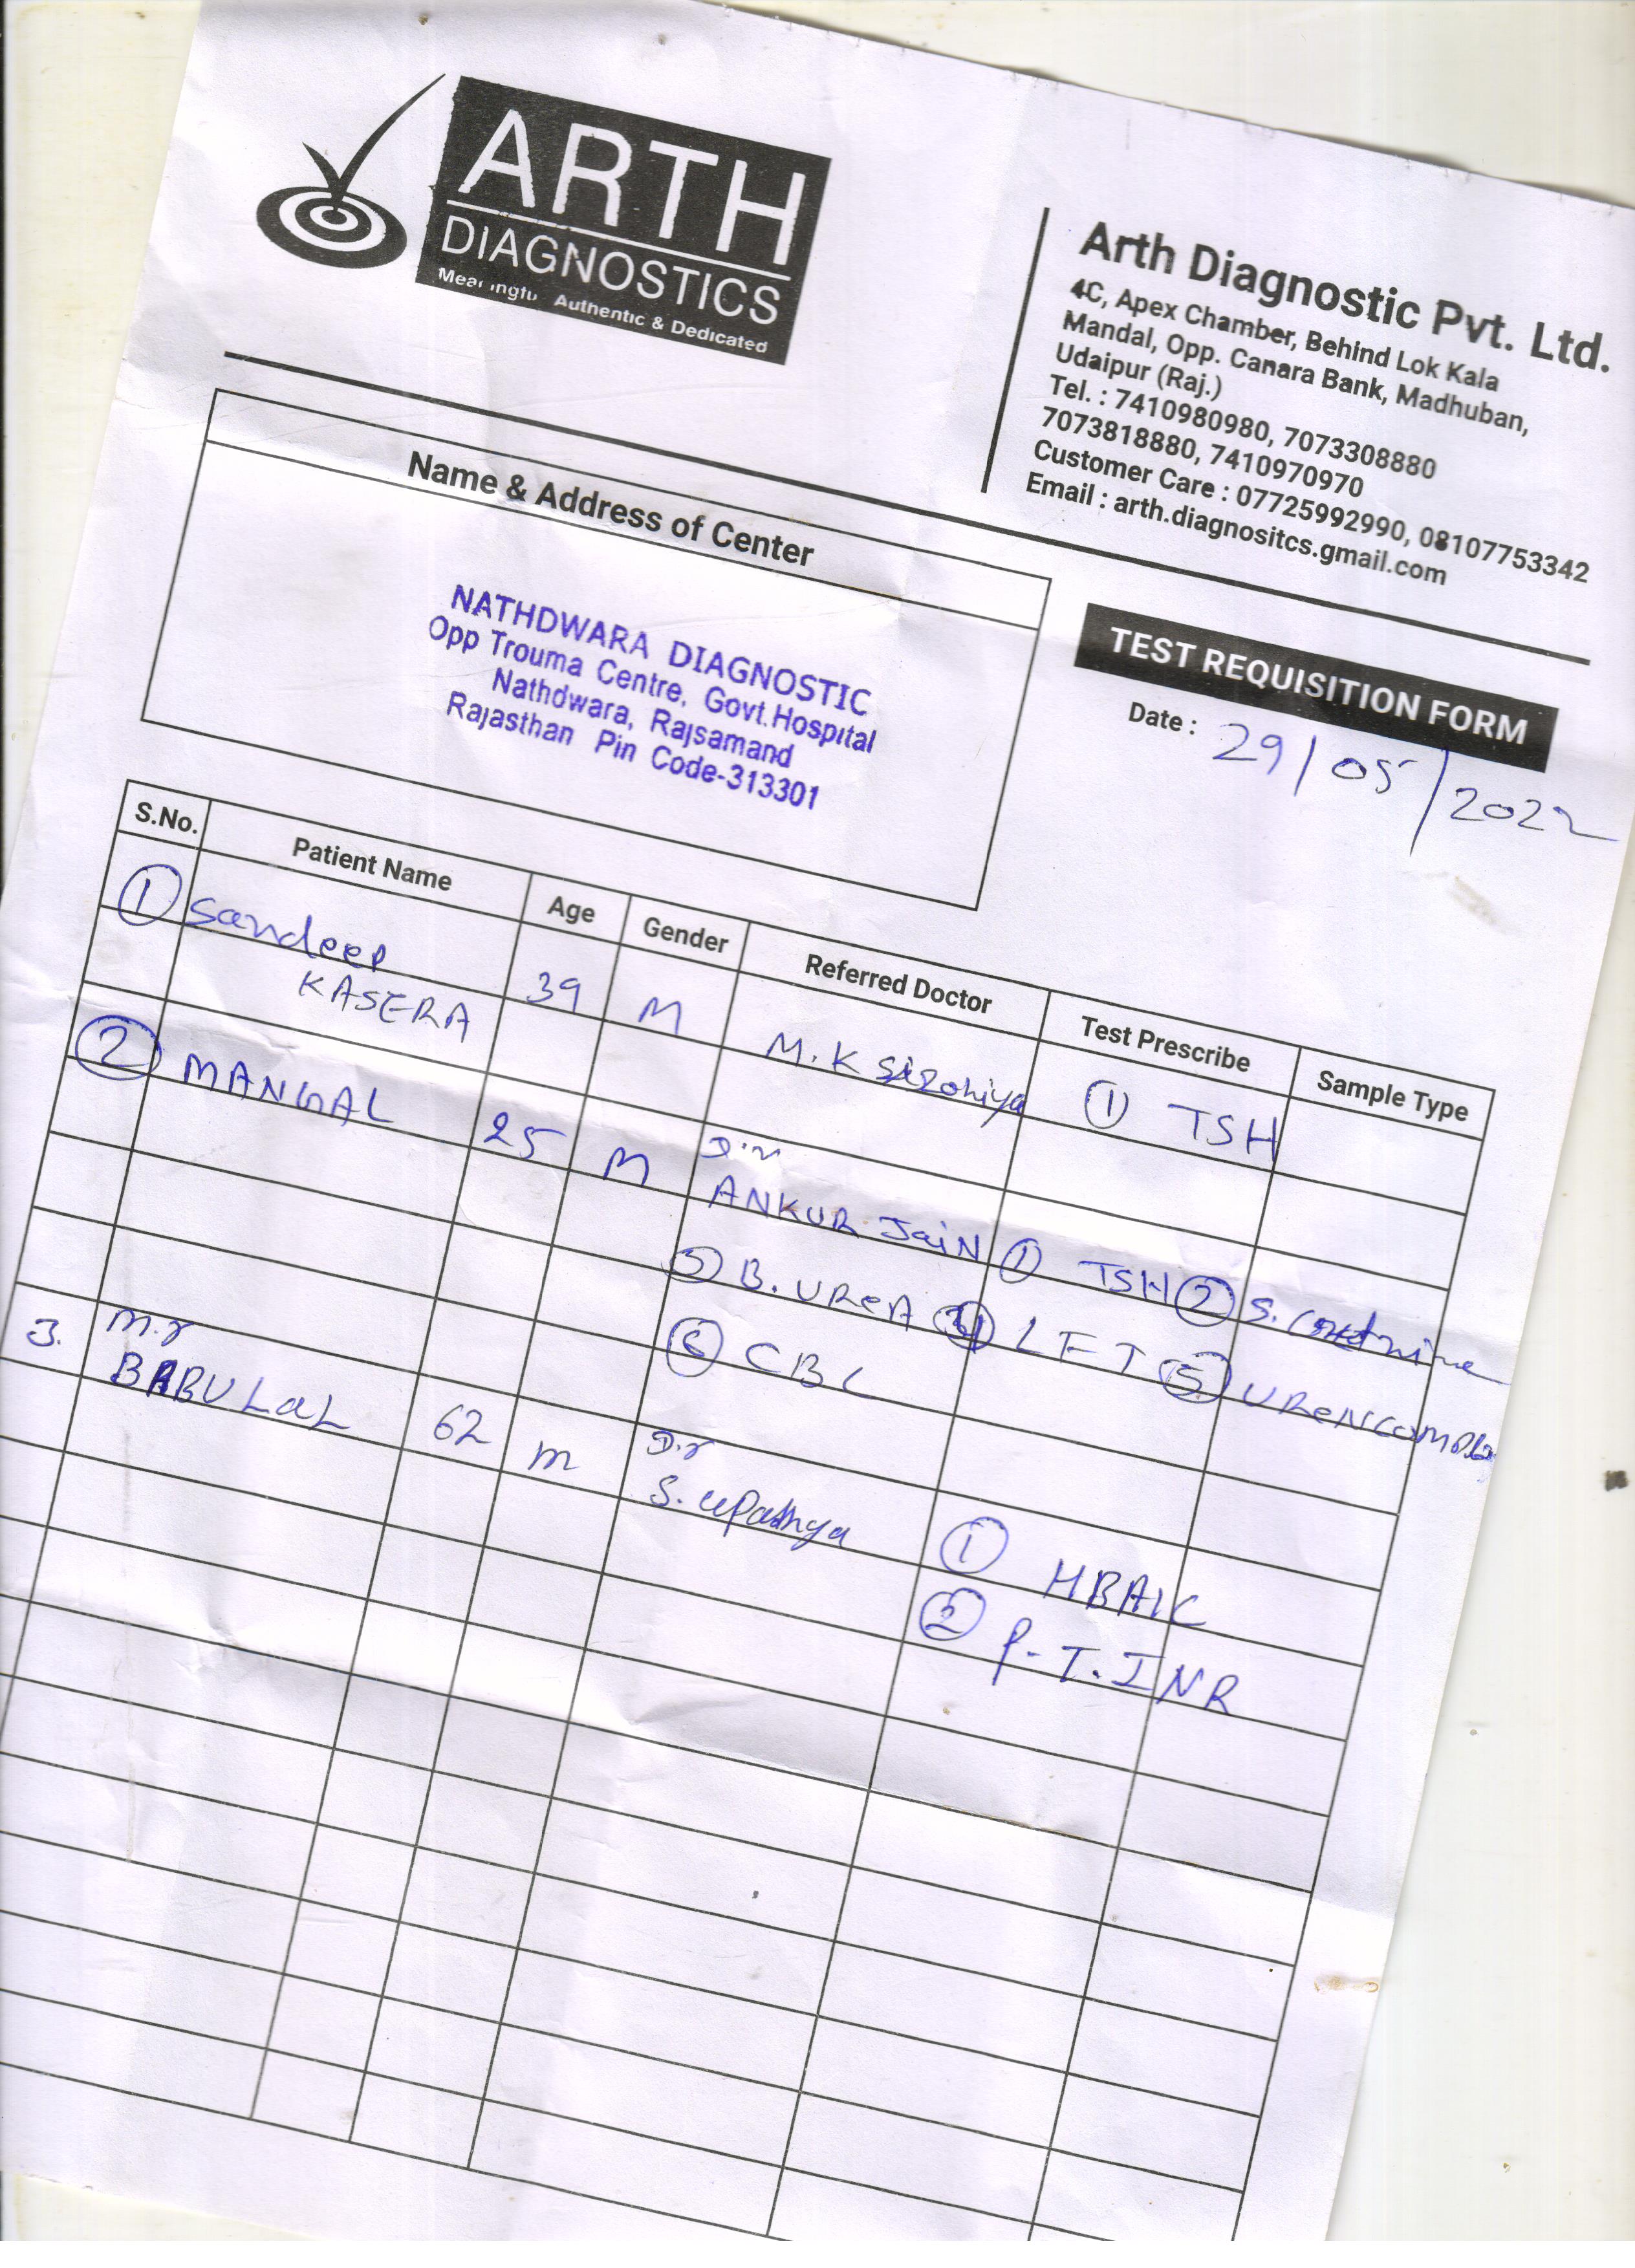 ARTH
DIAGNOSTICS
Meaningful Authentic & Dedicated
Arth Diagnostic Pvt. Ltd.
4C, Apex Chamber, Behind Lok Kala
Mandal, Opp. Canara Bank, Madhuban,
Udaipur (Raj.)
Tel. : 7410980980, 7073308880
7073818880, 7410970970
Customer Care : 07725992990, 08107753342
Email : arth.diagnositcs.gmail.com
Name & Address of Center
NATHDWARA DIAGNOSTIC
Opp Trouma Centre, Govt.Hospital
Nathdwara, Rajsamand
Rajasthan Pin Code-313301
TEST REQUISITION FORM
Date : 29/05/2022
S.No. Patient Name Age Gender Referred Doctor Test Prescribe Sample Type
1 Sandeep
KASERA 39 M M.K Sirohiya 1 TSH
2 MANGAL 25 M D.r
ANKUR JaiN 1 TSH 2 S.
3 B. UREA 4 LFT 5
6 CBC
3. M.r
BABULaL 62 m D.r
S. upadhya 1 HBAIC
2 P.T.INR